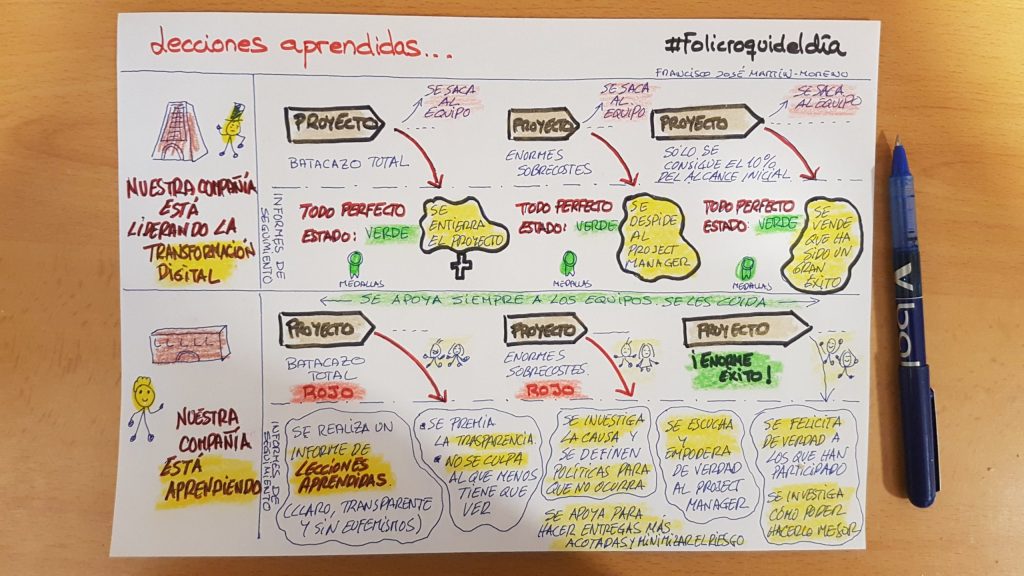 Lecciones aprendidas...
#Folicroquideldía
FRANCISCO JOSÉ MARTÍN-MORENO
NUESTRA COMPAÑÍA
ESTÁ
LIDERANDO LA
TRANSFORMACIÓN
DIGITAL
PROYECTO
SE SACA
AL
EQUIPO
BATACAZO TOTAL
PROYECTO
SE SACA
AL
EQUIPO
ENORMES
SOBRECOSTES
PROYECTO
SE SACA
AL EQUIPO
SÓLO SE
CONSIGUE EL 10%
DEL ALCANCE INICIAL
INFORMES DE
SEGUIMIENTO
TODO PERFECTO
ESTADO: VERDE
MEDALLAS
SE
ENTIERRA
EL PROYECTO
TODO PERFECTO
ESTADO: VERDE
MEDALLAS
SE
DESPIDE
AL
PROJECT
MANAGER
TODO PERFECTO
ESTADO: VERDE
MEDALLAS
SE
VENDE
QUE HA
SIDO UN
GRAN
ÉXITO
SE APOYA SIEMPRE A LOS EQUIPOS. SE LES CUIDA
NUESTRA
COMPAÑÍA
ESTÁ
APRENDIENDO
PROYECTO
BATACAZO
TOTAL
ROJO
PROYECTO
ENORMES
SOBRECOSTES.
ROJO
PROYECTO
¡ENORME
ÉXITO!
INFORMES DE
SEGUIMIENTO
SE REALIZA UN
INFORME DE
LECCIONES
APRENDIDAS.
(CLARO, TRANSPARENTE
Y SIN EUFEMISMOS)
SE PREMIA
LA TRASPARENCIA
NO SE CULPA
AL QUE MENOS
TIENE QUE
VER
SE INVESTIGA
LA CAUSA Y
SE DEFINEN
POLÍTICAS PARA
QUE NO OCURRA.
SE APOYA PARA
HACER ENTREGAS MÁS
ACOTADAS Y MINIMIZAR EL RIESGO
SE ESCUCHA
Y
EMPODERA
DE VERDAD
AL PROJECT
MANAGER
SE FELICITA
DE VERDAD A
LOS QUE HAN
PARTICIPADO
SE INVESTIGA
CÓMO PODER
HACERLO MEJOR
V ball